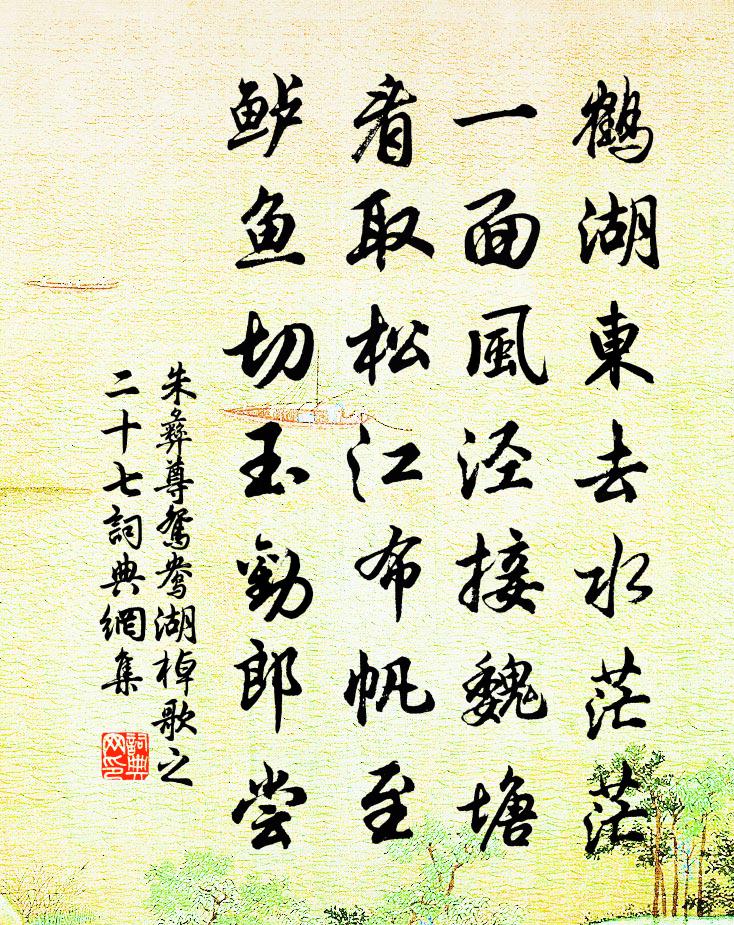 鶴湖東去水茫茫
一面風泾接魏塘
看取松江布帆至
鲈鱼切玉勸郎尝
朱彝尊鴛鴦湖棹歌之
二十七詞典網集
詞典
网印